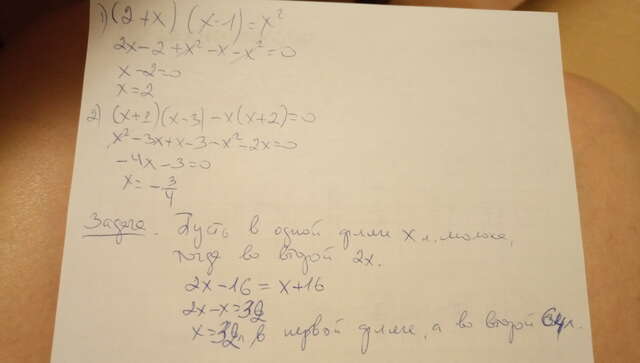 1) (2+x) (x-1) = x²
2x-2+x²-x-x²=0
x-2=0
x=2
2) (x+1)(x-3)-x(x+2)=0
x²-3x+x-3-x²-2x=0
-4x-3=0
x=-3/4
Задача. Пусть в одной фляге x л. молока,
тогда во второй 2x.
2x-16=x+16
2x-x=32
x=32л в первой фляге, а во второй 64л.